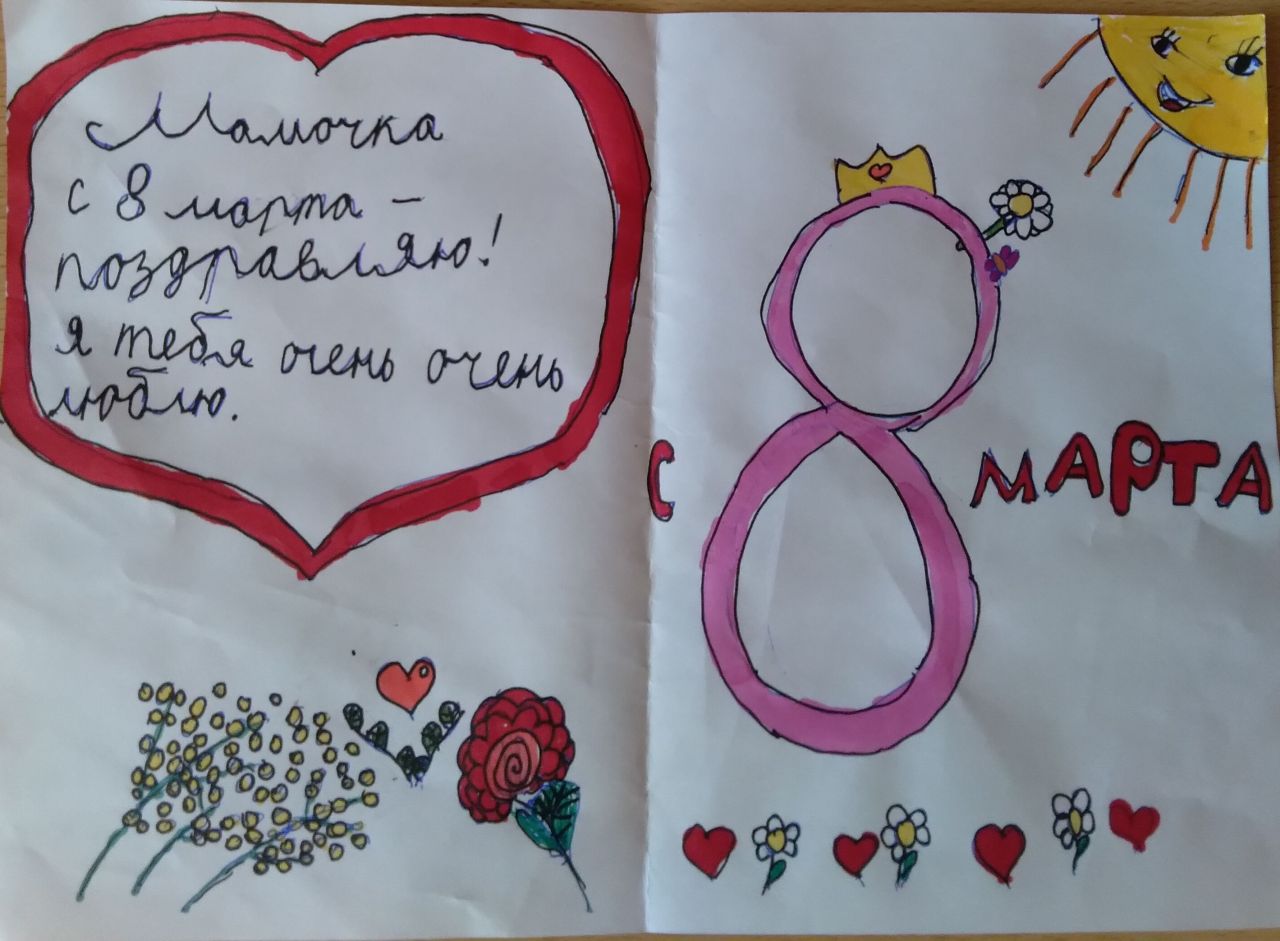 Мамочка
с 8 марта –
поздравляю!
я тебя очень очень
люблю.
С 8 МАРТА